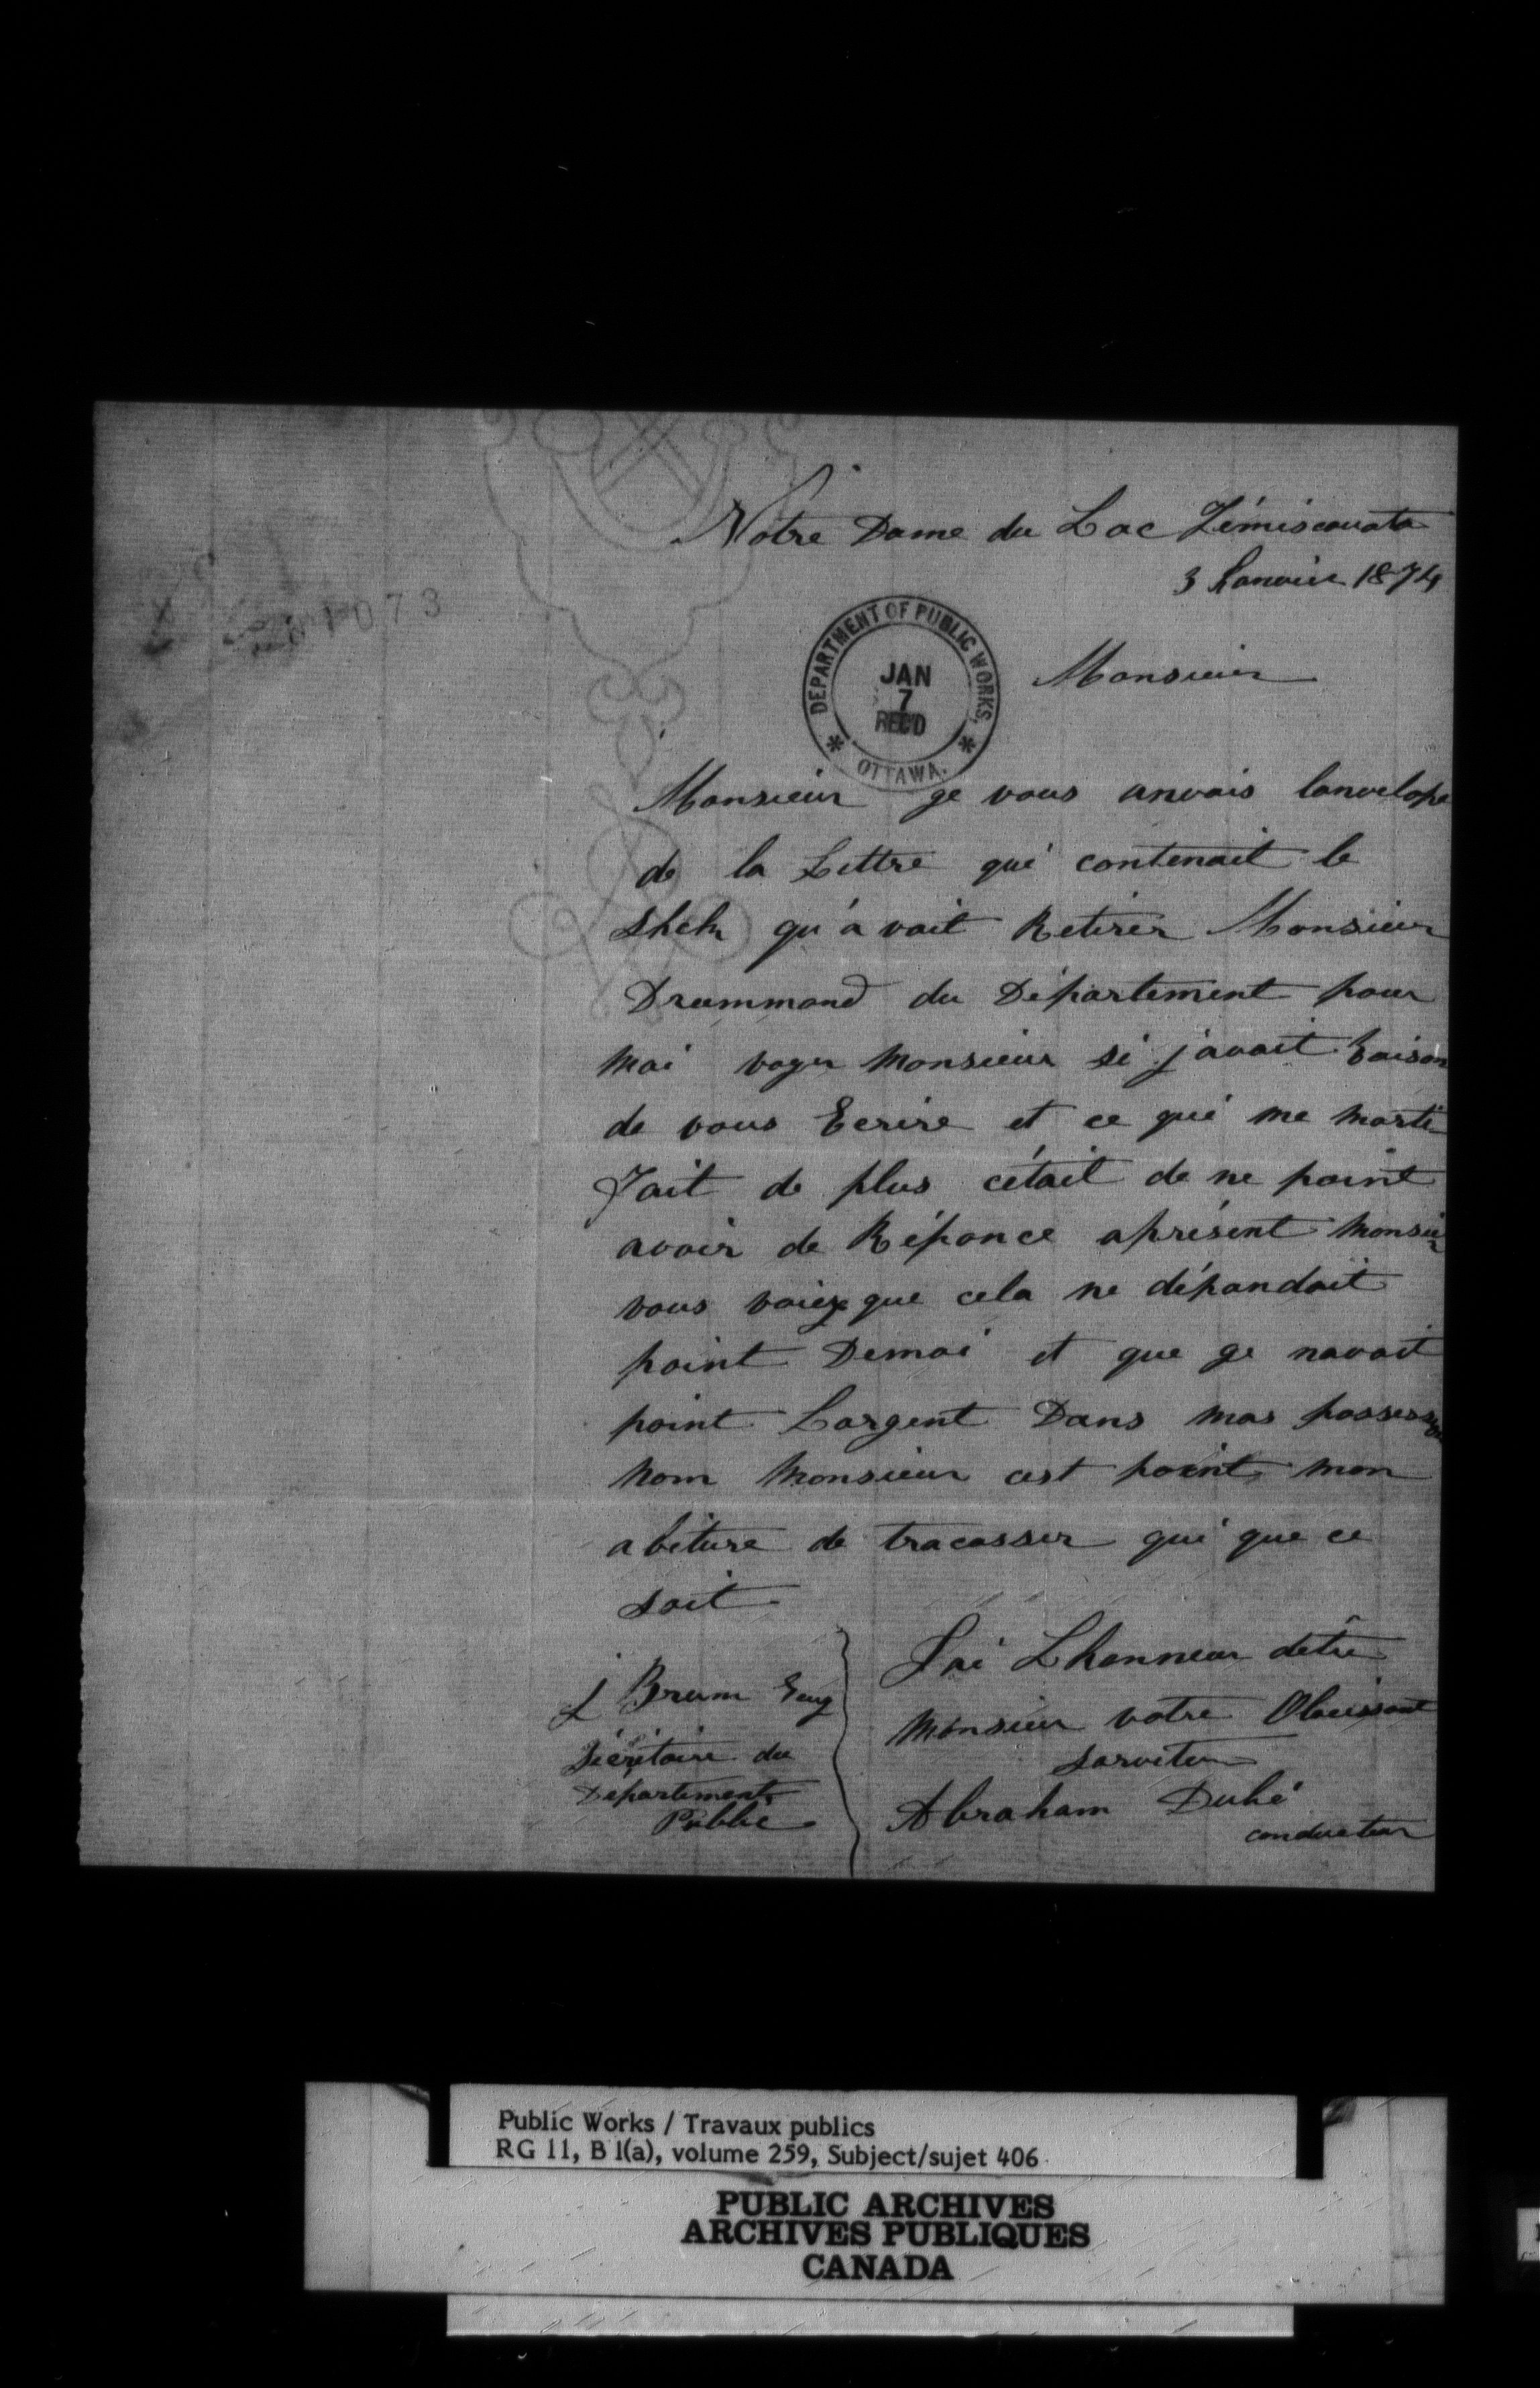 Notre Dame du Lac Témiscouata
3 Janvier 1874
31073
DEPARTMENT OF PUBLIC WORKS,
JAN
7
REC'D
OTTAWA.
Monsieur
Monsieur ge vous anvois lanvelope
de la Lettre qui contenait le
shek qu'a vait Retirer Monsieur
Drummond du Département pour
moi voyer Monsieur si j'avait Raison
de vous Ecrire et ce qui me morti
fait de plus cétait de ne point
avoir de Réponce aprésent Monsieur
vous voiez que cela ne dépandait
point Demoi et que ge navait
point Largent Dans mas possession
nom Monsieur cest point mon
abiture de tracasser qui que ce
soit
J'ai Lhonneur dêtre
Monsieur votre Obeissant
sarviteur
Abraham Dubé
conducteur
J Brum Esq
Sécrétaire du
Département
Public
Public Works / Travaux publics
RG 11, B 1(a), volume 259, Subject/sujet 406
PUBLIC ARCHIVES
ARCHIVES PUBLIQUES
CANADA